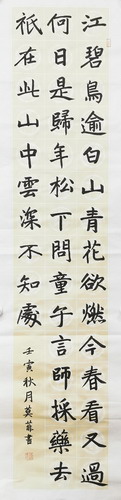 江碧鳥逾白山青花欲燃今春看又過
何日是歸年松下問童子言師採藥去
祇在此山中雲深不知處
壬寅秋月莫菲書